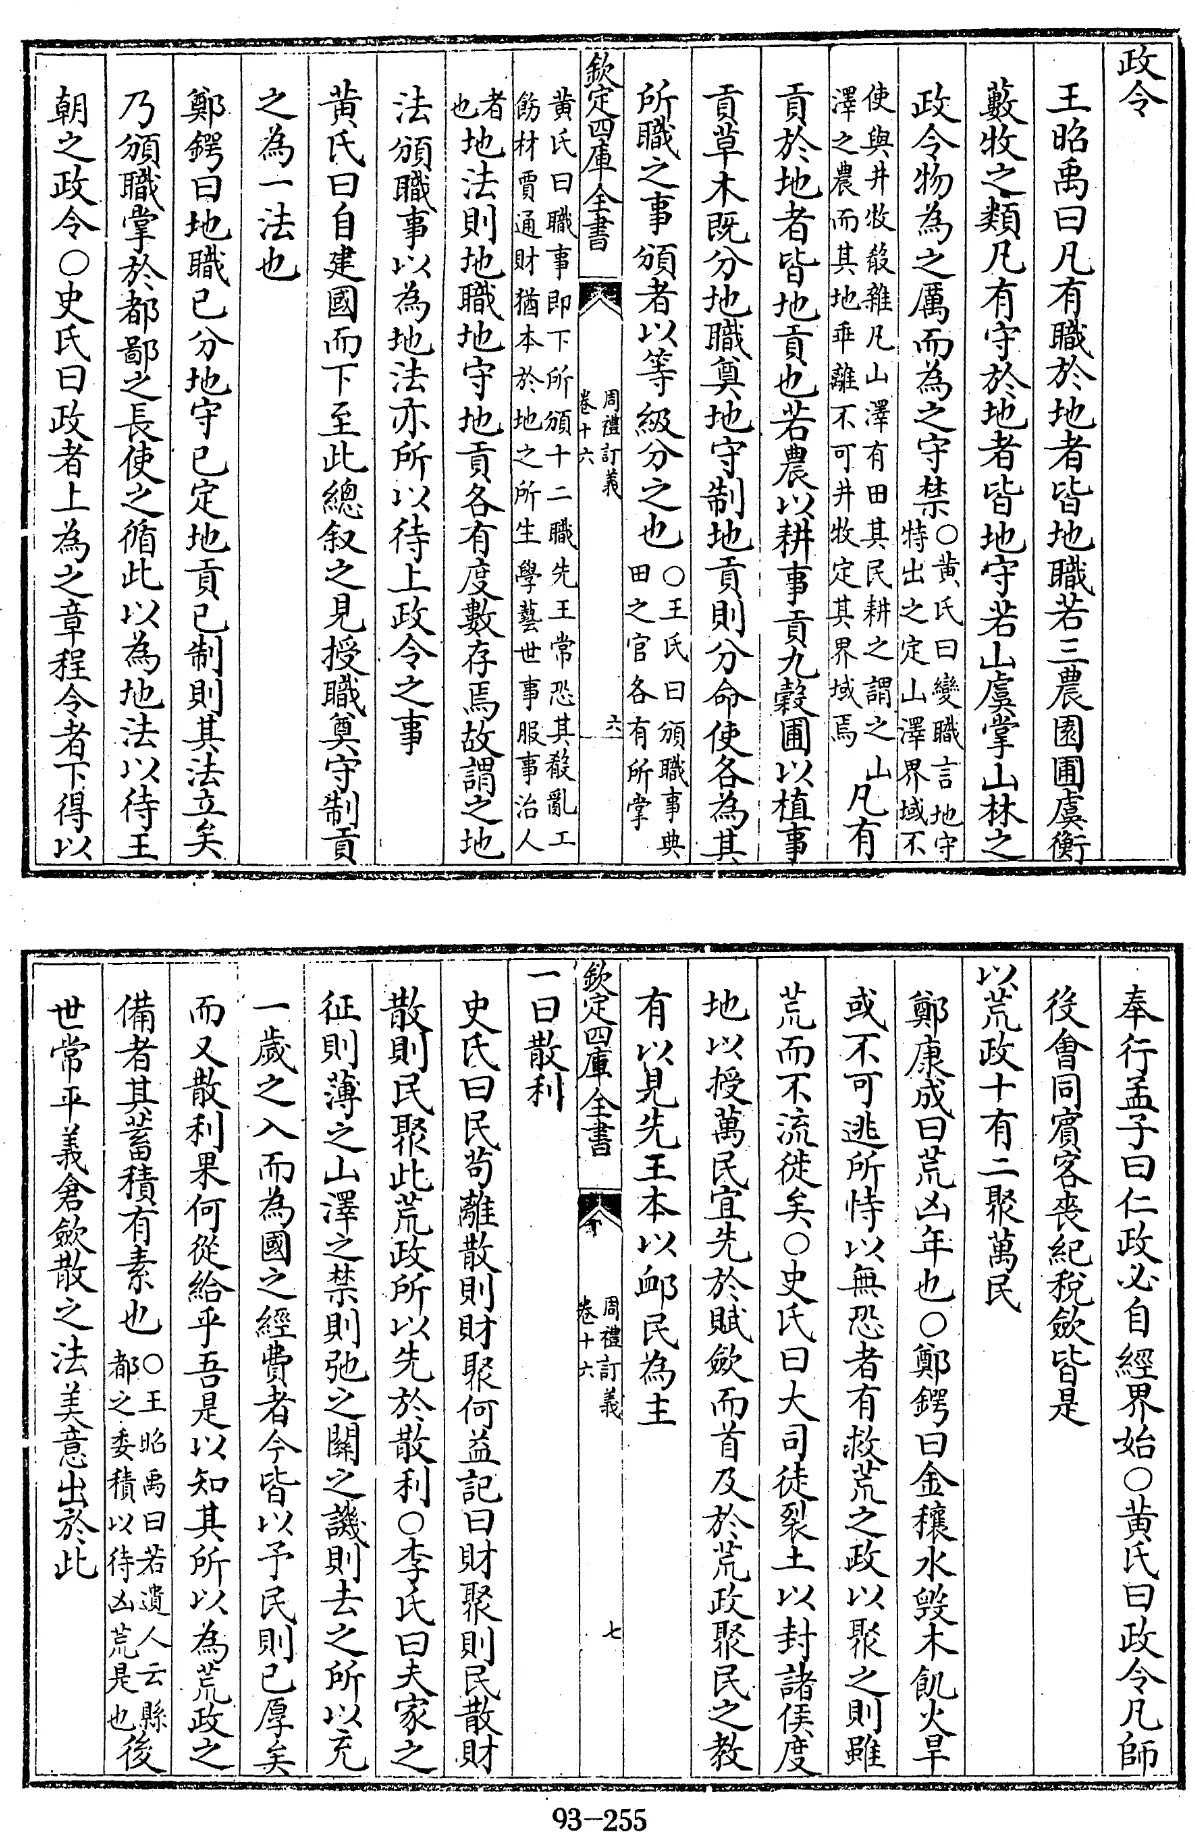 政令
王昭禹曰凡有職於地者皆地職若三農園圃虞衡
藪牧之類凡有守於地者皆地守若山虞掌山林之
政令物為之厲而為之守禁○黄氏曰變職言地守
特出之定山澤界域不
使與井牧殽雜凡山澤有田其民耕之謂之山
澤之農而其地乖離不可井牧定其界域焉
凡有
貢於地者皆地貢也若農以耕事貢九穀圃以植事
貢草木既分地職奠地守制地貢則分命使各為其
所職之事頒者以等級分之也○王氏曰頒職事典
田之官各有所掌
欽定四庫全書
周禮訂義
卷十六
六
黄氏曰職事即下所頒十二職先王常恐其殽亂工
飭材賈通財猶本於地之所生學藝世事服事治人
者
也
地法則地職地守地貢各有度數存焉故謂之地
法頒職事以為地法亦所以待上政令之事
黄氏曰自建國而下至此總叙之見授職奠守制貢
之為一法也
鄭鍔曰地職已分地守已定地貢已制則其法立矣
乃頒職掌於都鄙之長使之循此以為地法以待王
朝之政令○史氏曰政者上為之章程令者下得以
奉行孟子曰仁政必自經界始○黄氏曰政令凡師
役會同賓客喪紀稅歛皆是
以荒政十有二聚萬民
鄭康成曰荒凶年也○鄭鍔曰金穰水毁木飢火旱
或不可逃所恃以無恐者有救荒之政以聚之則雖
荒而不流徙矣○史氏曰大司徒裂土以封諸侯度
地以授萬民宜先於賦歛而首及於荒政聚民之教
有以見先王本以卹民為主
欽定四庫全書
周禮訂義
卷十六
七
一曰散利
史氏曰民苟離散則財聚何益記曰財聚則民散財
散則民聚此荒政所以先於散利○李氏曰夫家之
征則薄之山澤之禁則弛之關之譏則去之所以充
一歲之入而為國之經費者今皆以予民則已厚矣
而又散利果何從給乎吾是以知其所以為荒政之
備者其蓄積有素也○王昭禹曰若遺人云縣
都之委積以待凶荒是也
後
世常平義倉歛散之法美意出於此
93-255